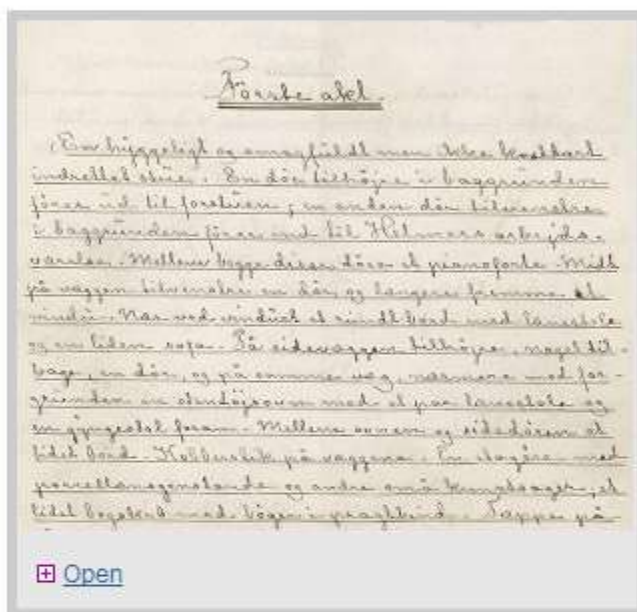 Første akt.
En hyggeligt og smagfuldt men ikke kostbart
indrettet stue. En dör tilhöjre i baggrunden
förer ud til forstuen; en anden dör tilvenstre
i baggrunden förer ind til Helmers arbejds-
værelse. Mellem begge disse döre et pianoforte. Midt
på væggen tilvenstre en dör, og længere fremme et
vindu. Nær ved vinduet et rundt bord med lænestole
og en liden sofa. På sidevæggen tilhöjre, noget til-
bage, en dör, og på samme væg, nærmere mod for-
grunden en stentöjsovn med et par lænestole og
en gyngestol foran. Mellem ovnen og sidedören et
lidet bord. Kobberstik på væggene. En etagère med
porcellænsgenstande og andre små kunstsager; et
lidet bogskab med böger i pragtbind. Tæppe på
Open